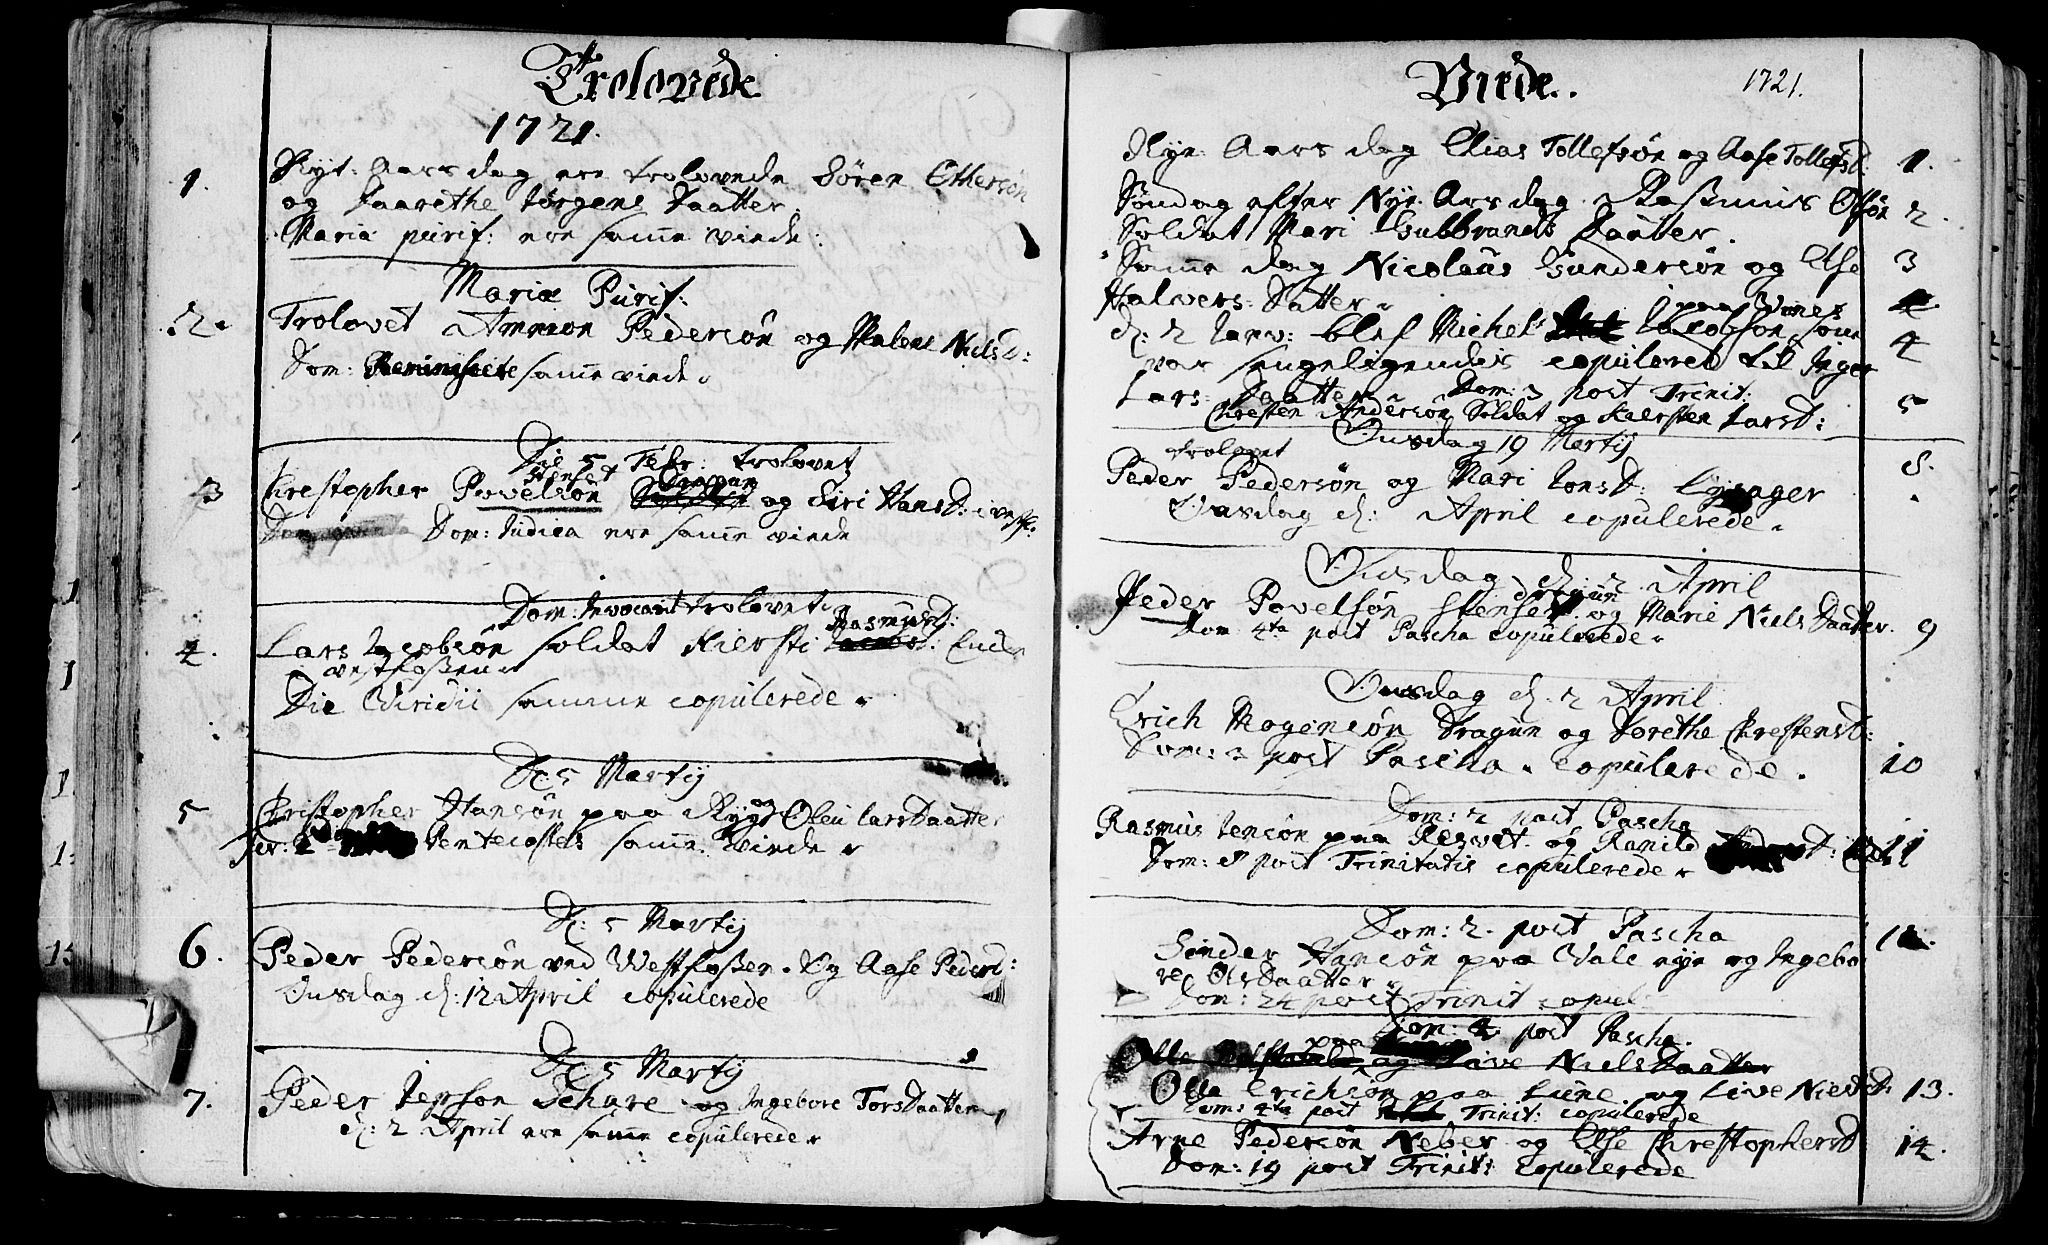 Trolovede
1721.
1. Nyt: Aars dag ere trolovede Sören Ethersön
og Daarethe Jörgens Daatter.
Maria purif: ere samme viede:
Mariæ Purif:
2. Trolovet Ammon Pedersön og Malene Niels D:
Dom: Reminiscere samme viede.
Die 5 Febr: trolovet
Stenset Dragun
3 Christopher Povelsön og Siri Hans D:
Dom: Judica ere samme viede
Dom: Invocavit trolovet
Rasmus D:
4. Lars Jacobsön soldat Kiersti
vestfossen
Die Viridii samme copulerede.
D: 5 Martij
5 Christopher Hansön paa Rygh og Oleu Lars Daatter
fer: 2 Pentecostes samme viede.
D: 5 Martij
6. Peder Pedersön ved Westfossen. Og Aase Peders D:
Onsdag d: 12 April copulerede
D: 5 Martij
7. Peder Jepson Schare og Ingebore Tors Daatter
d: 2 April ere samme copulerede.
Viede. 1721.
Nye Aars dag Elias Tollefsön og Aase Tollefs D: 1.
Söndag efter Nye Aars dag Rasmus Olsön 2.
Soldat Mari Gubbrands Daatter.
Samme dag Nicolaus Gundersön og Else 3
Halvers Datter.
paa Vines
d: 2 Janv: blef Michel Jacobson som 4
var sengeligendes copuleret Inger
Lars Daatter. Dom: 3 post Trinit:
Christen Andersön Soldat og Kiersten Lars D: 5
Onsdag 19 Martij
trolovet
Peder Pedersön og Mari Jons D: 8.
Onsdag d: April copulerede.
Onsdag d. 2 April
dragun
Peder Povelsön Stenset og Marie Niels Daatter. 9
Dom 4ta post Pascha copulerede.
Onsdag d. 2 April
Erich Mogensön Dragun og Dorethe Christens D:
Dom: 3 post Pascha. copulerede. 10
Dom: 2 post Pascha
Rasmus Jensön paa og Ranild D: 11
Dom: 8 post Trinitatis copulerede.
Dom: 2. post Pascha 12.
Sönder Hansön paa Vale eye og Ingebo
re Ols Daatter.
Dom: 24 post Trinit copul
Dom: 2. post Pascha.
paa
Olle og Live Niels Daatter
Olle Erichsön paa Lune og Live Niels D: 13.
Dom: 4ta post Trinit: copulerede
Arne Pedersön Neber og Else Christophers D 14.
Dom: 19 post Trinit: copulerede